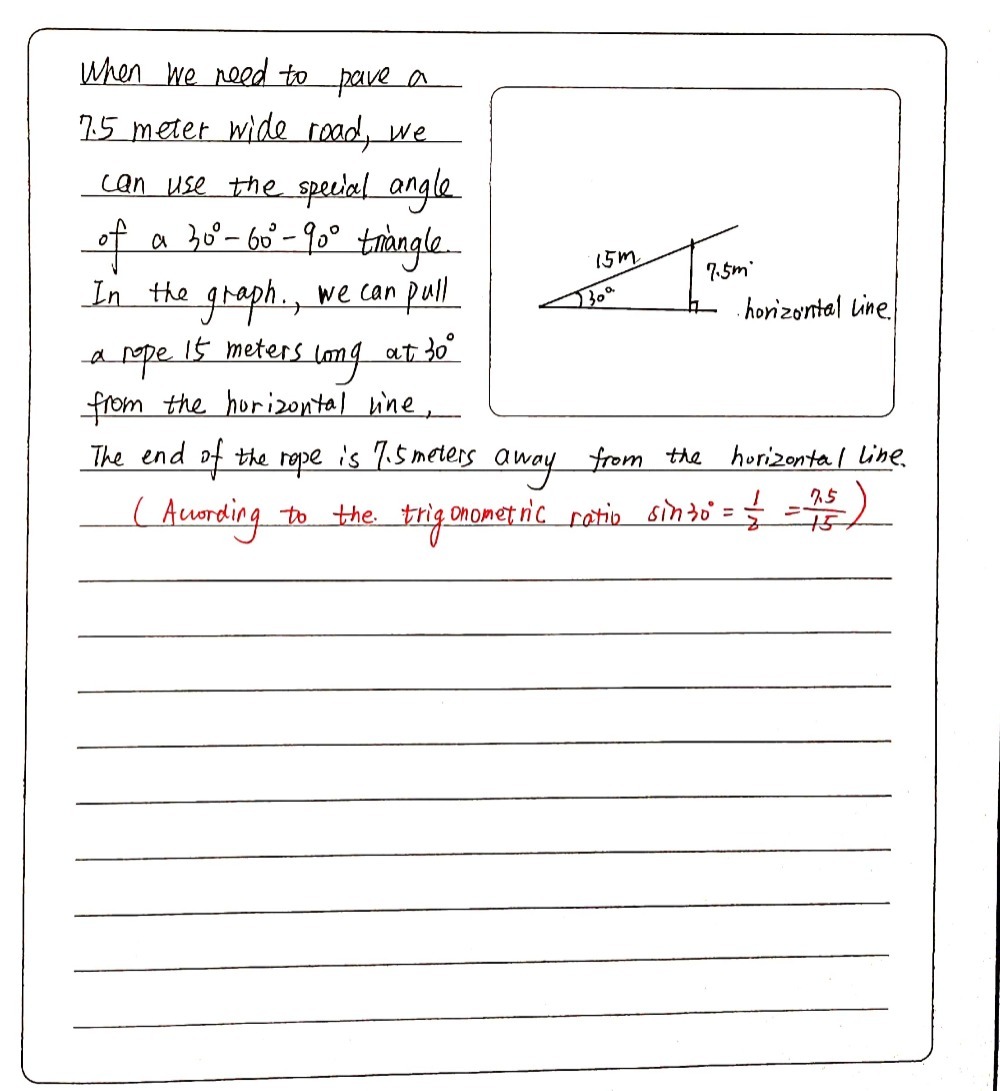 When we need to pave a
7.5 meter wide road, we
can use the special angle
of a 30°-60°-90° triangle.
In the graph., we can pull
a rope 15 meters long at 30°
from the horizontal line,
15m
7.5m
30°
horizontal line.
The end of the rope is 7.5 meters away from the horizontal line.
(According to the. trigonometric ratio sin30° = 1/2 = 7.5/15)